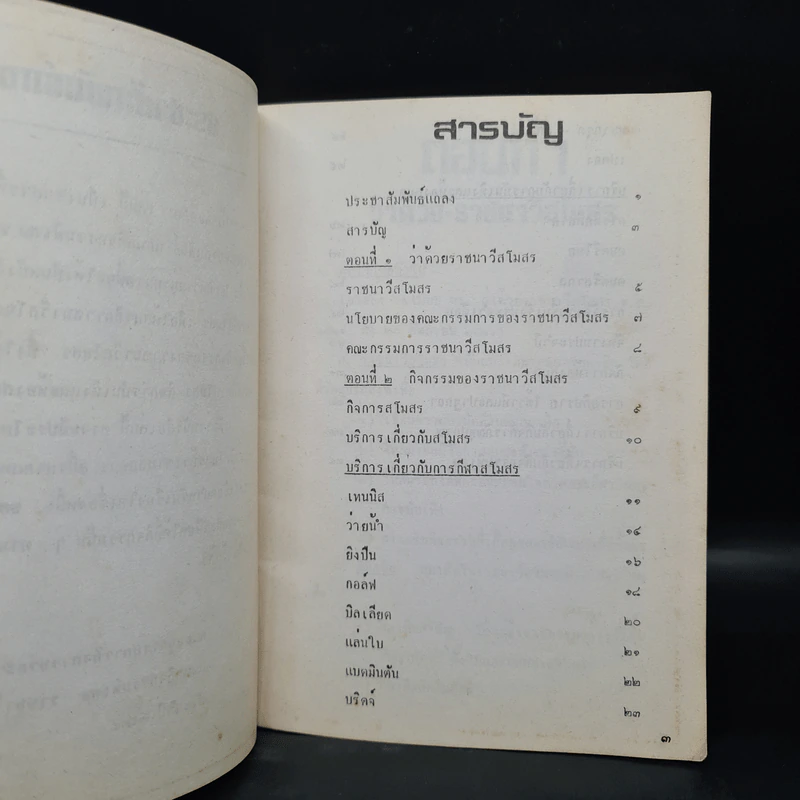 สารบัญ
ประชาสัมพันธ์แถลง ๑
สารบัญ ๓
ตอนที่ ๑ ว่าด้วยราชนาวีสโมสร
ราชนาวีสโมสร ๕
นโยบายของคณะกรรมการของราชนาวีสโมสร ๗
คณะกรรมการราชนาวีสโมสร ๘
ตอนที่ ๒ กิจกรรมของราชนาวีสโมสร
กิจการสโมสร ๙
บริการเกี่ยวกับสโมสร ๑๐
บริการเกี่ยวกับการกีฬาสโมสร
เทนนิส ๑๑
ว่ายน้ำ ๑๔
ยิงปืน ๑๖
กอล์ฟ ๑๘
บิลเลียด ๒๐
แล่นใบ ๒๑
แบดมินตัน ๒๒
บริดจ์ ๒๓
๓